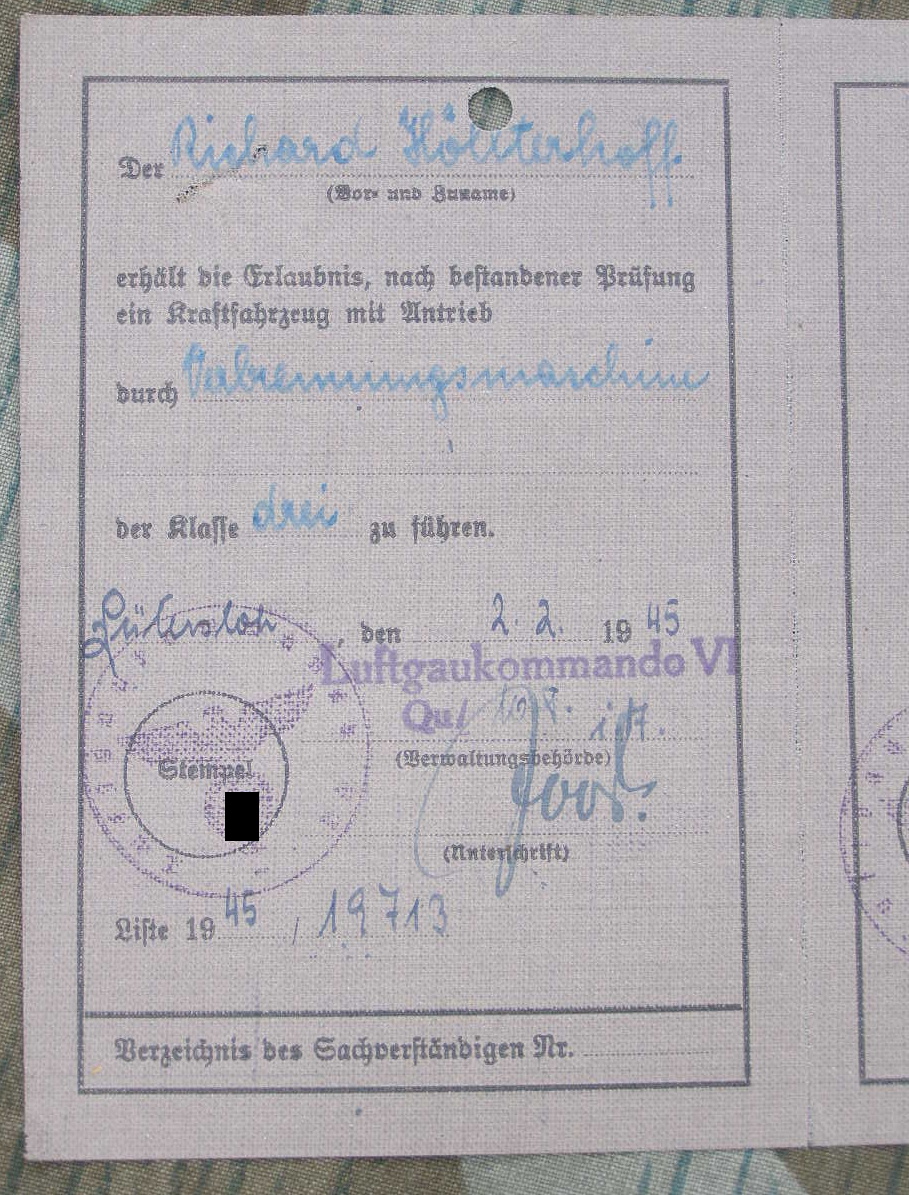 Der Richard Höllterhoff
(Vor- und Zuname)
erhält die Erlaubnis, nach bestandener Prüfung
ein Kraftfahrzeug mit Antrieb
durch Verbrennungsmaschine
der Klasse drei zu führen.
Gütersloh, den 2. 2. 1945
Luftgaukommando VI
Qu/
(Verwaltungsbehörde)
Stempel
(Unterschrift)
Liste 1945 / 19713
Verzeichnis des Sachverständigen Nr.